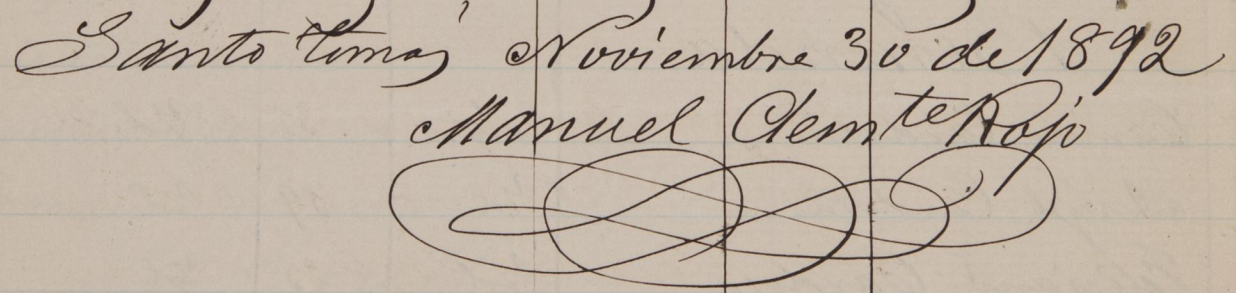 Santo tomas Noviembre 30 de 1892
Manuel Clemte Rojo